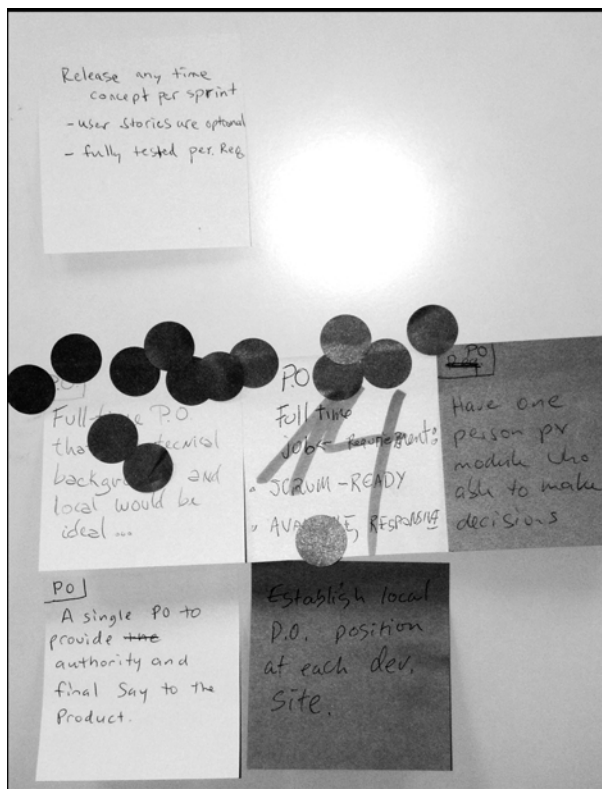 Release any time
concept per sprint
- user stories are optional
- fully tested per. Req
PO
Full-time P.O.
background and
local would be
ideal ...
P.O
Full time
job ← Requirement:
• SCRUM-READY
• AVAILABLE, RESPONSIVE
14
PO
Have one
person pr
module who
able to make
decisions
PO
A single PO to
provide the
authority and
final say to the
Product.
Establish local
P.O. position
at each dev.
site.